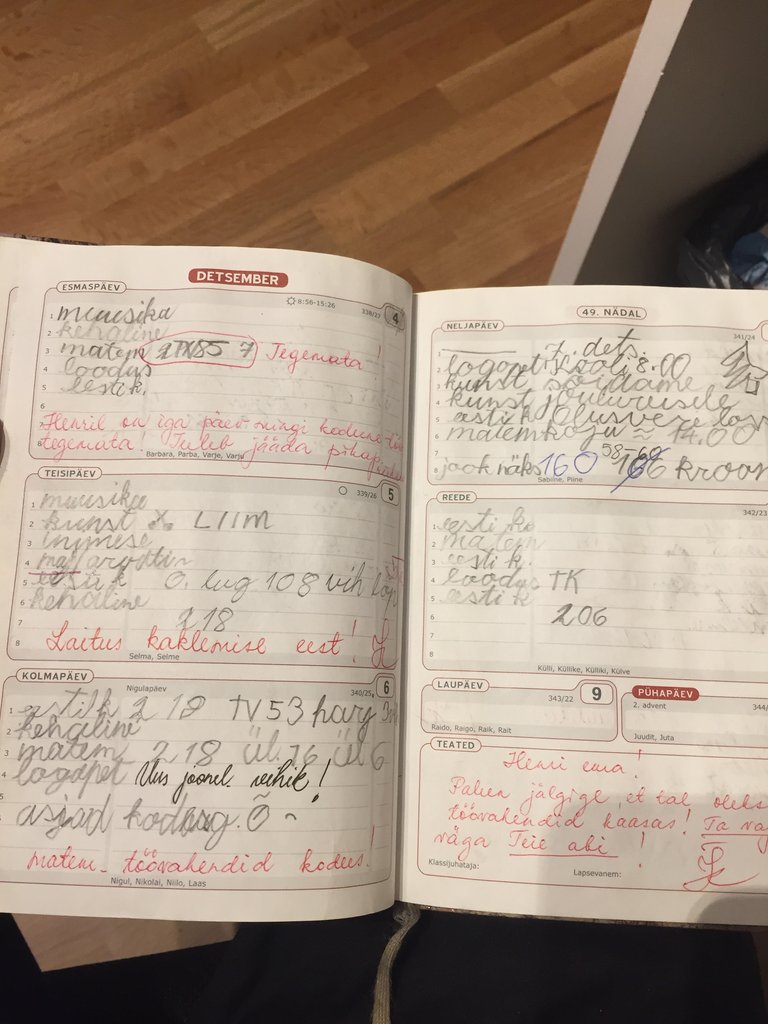 DETSEMBER
ESMASPÄEV
8:56-15:26
338/27
4
1 muusika
2 kehaline
3 matem TV85 7 Tegemata!
4 loodus
5 eesti k.
6
7 Henril on iga päev mingi kodune töö
8 tegemata! Tuleb jääda
Barbara, Parba, Varje, Varju
TEISIPÄEV
339/26
5
1 muusika
2 kunst X. LIIM
3 inimese
4
5 eesti k O. lug 108 vih lõp
6 kehaline
7 218
8 Laitus kaklemise eest!
Selma, Selme
KOLMAPÄEV
Nigulapäev
340/25
6
1 eesti k 2 18 TV 53 harj 3
2 kehaline
3 matem 218 ül. 76 ül 6
4 logopet Uus joonel. vihik!
5 asjad kodus Õ ~ !
matem. töövahendid kodus!
Nigul, Nikolai, Niilo, Laas
49. NÄDAL
NELJAPÄEV
341/24
7. dets.
logopet Kooli 8.00
kunst sõidame
kunst jõulureisile
eesti k Olustvere loss
matem koju ≈ 14.00
jook näks 160 krooni
Sabiine, Piine
REEDE
342/23
1 eesti k
2 matem
3 eesti k.
4 loodus TK
5 eesti k
6 206
7
8
Külli, Küllike, Külliki, Külve
LAUPÄEV
343/22
9
Raido, Raigo, Raik, Rait
PÜHAPÄEV
2. advent
344/
Juudit, Juta
TEATED
Henri ema!
Palun jälgige, et tal oleks
töövahendid kaasas! Ta va
väga Teie abi!
Klassijuhataja:
Lapsevanem: